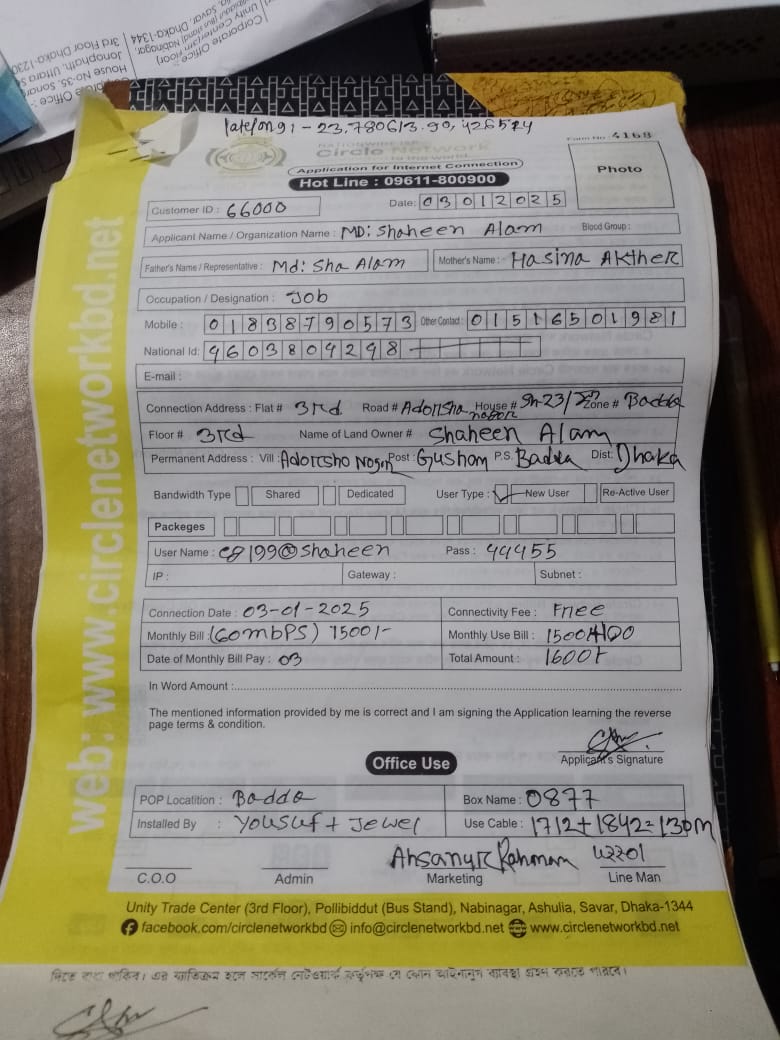 Corporate Office
House No-35, Sonar
Jonophath, Uttara
3rd Floor Dhaka-1230
Nabinagar,
Savar, Dhaka-1344
late/long: - 23.780613.90,426574
Form No: 4168
Circle Network
Application for Internet Connection
Photo
Hot Line : 09611-800900
Customer ID : 66000 Date: 03012025
Applicant Name / Organization Name : MD: Shaheen Alam Blood Group :
Father's Name / Representative : Md: Sha Alam Mother's Name : Hasina Akther
Occupation / Designation : Job
Mobile : 01838790573 Other Contact : 01516501981
National Id: 4603804298
E-mail :
Connection Address : Flat # 3rd Road # Adorsha nagor House # Sh-23/ Zone # Badda
Floor # 3rd Name of Land Owner # Shaheen Alam
Permanent Address : Vill : Adorsho Nogor Post : Gushan P.S. Badda Dist: Dhaka
Bandwidth Type Shared Dedicated User Type : New User Re-Active User
Packeges
User Name : c8199@shaheen Pass : 44455
IP : Gateway : Subnet :
Connection Date : 03-01-2025 Connectivity Fee : Free
Monthly Bill : (60mbPS) 1500/- Monthly Use Bill : 1500+100
Date of Monthly Bill Pay : 03 Total Amount : 1600/-
In Word Amount :
The mentioned information provided by me is correct and I am signing the Application learning the reverse
page terms & condition.
Applicant's Signature
Office Use
POP Locatition : Badda Box Name : 0877
Installed By : Yousuf + Jewel Use Cable : 1712+1842=130m
Ahsanur Rahman
C.O.O Admin Marketing Line Man
Unity Trade Center (3rd Floor), Pollibiddut (Bus Stand), Nabinagar, Ashulia, Savar, Dhaka-1344
facebook.com/circlenetworkbd info@circlenetworkbd.net www.circlenetworkbd.net
web: www.circlenetworkbd.net
দিতে বাধ্য থাকিব। এর ব্যতিক্রম হলে সার্কেল নেটওয়ার্ক কর্তৃপক্ষ যে কোন আইনানুগ ব্যবস্থা গ্রহন করতে পারবে।